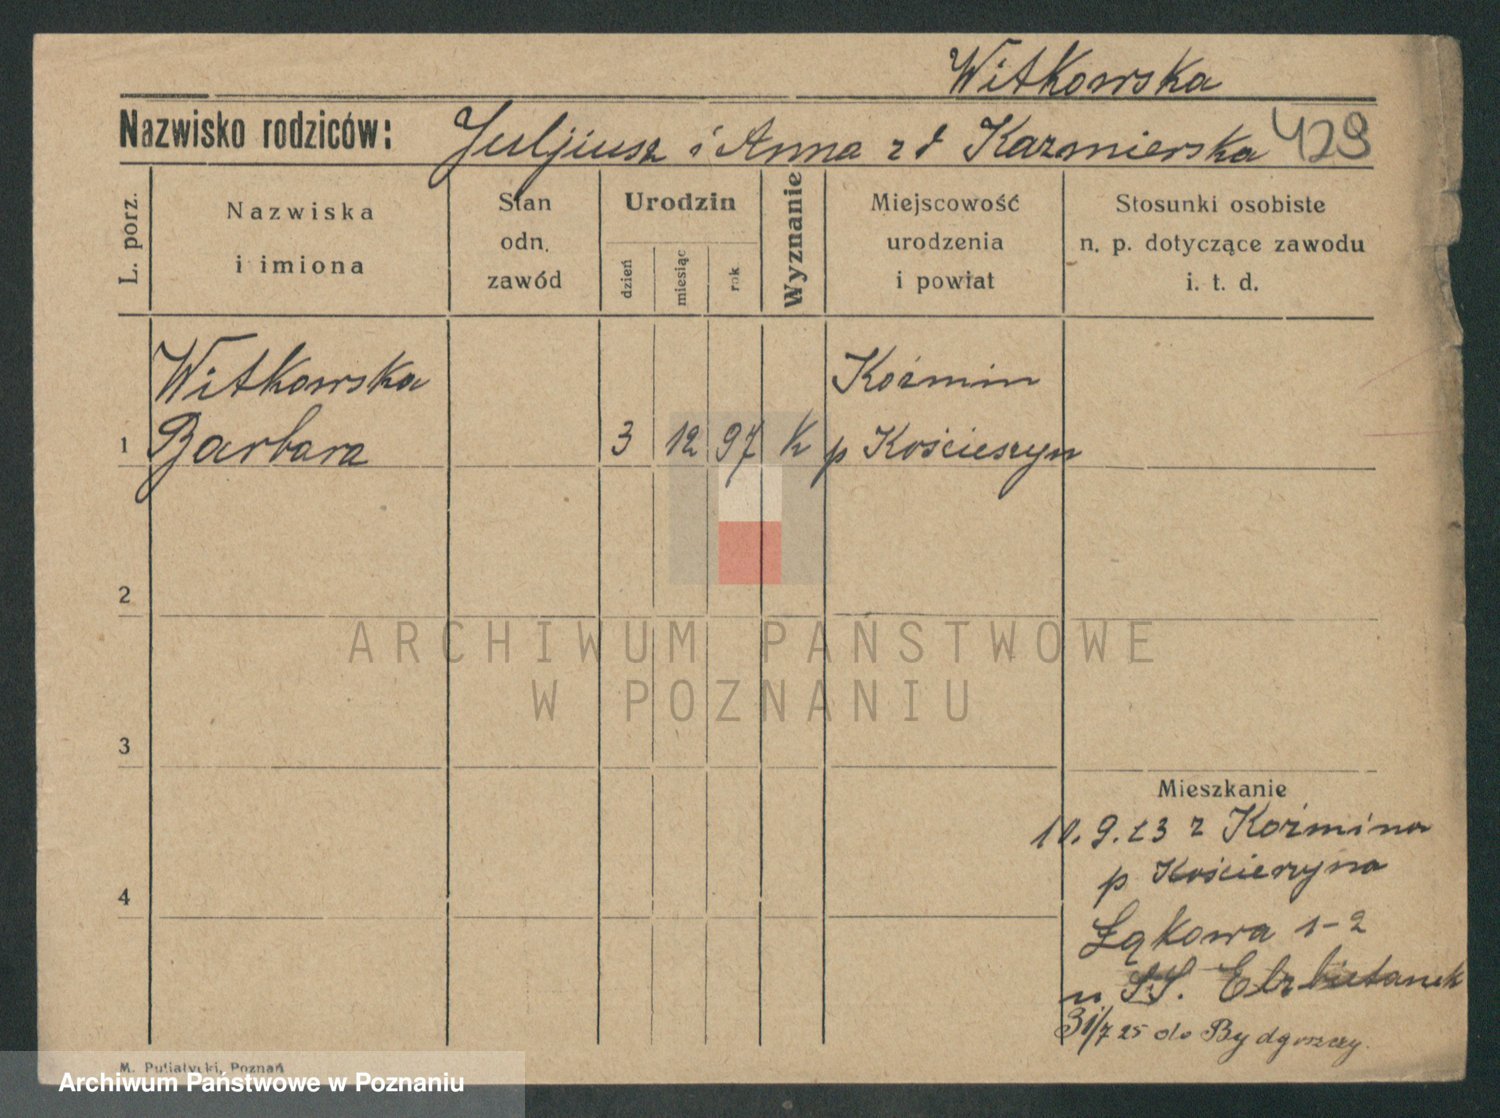 Witkowska
Nazwisko rodziców: Juljusz i Anna z d Kazmierska 429
L. porz.
Nazwiska
i imiona
Stan
odn.
zawód
Urodzin
dzień
miesiąc
rok
Wyznanie
Miejscowość
urodzenia
i powiat
Stosunki osobiste
n. p. dotyczące zawodu
i. t. d.
Witkowska Koźmin
1 Barbara 3 12 97 k p Kościeszyn
2
3
4
Mieszkanie
10.9.23 z Koźmina
p Kościerzyna
Łąkowa 1-2
u SS. Elzbietanek
31/7 25 do Bydgoszczy.
M. Putiatycki, Poznań
ARCHIWUM PAŃSTWOWE
W POZNANIU
Archiwum Państwowe w Poznaniu